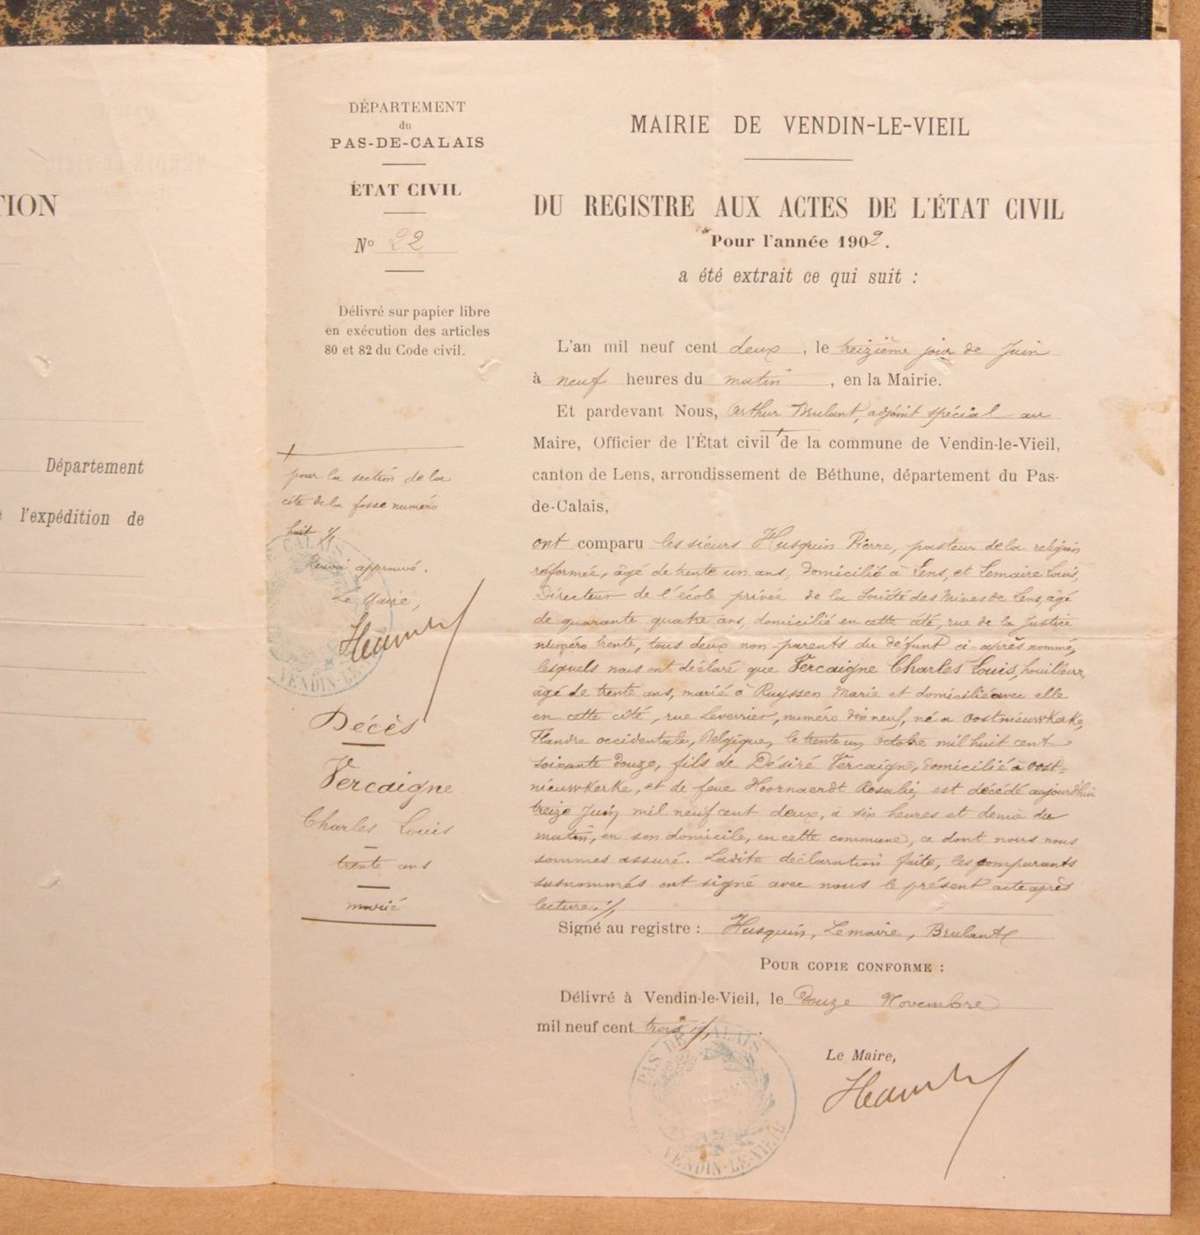 TION
Département
l'expédition de
DÉPARTEMENT
du
PAS-DE-CALAIS
ÉTAT CIVIL
N° 22
Délivré sur papier libre
en exécution des articles
80 et 82 du Code civil.
pour la section de la
cité de la fosse numéro
huit ./.
Renvoi approuvé.
Le Maire,
Décès
Vercaigne
Charles Louis
trente ans
marié
MAIRIE DE VENDIN-LE-VIEIL
DU REGISTRE AUX ACTES DE L'ÉTAT CIVIL
Pour l'année 1902.
a été extrait ce qui suit :
L'an mil neuf cent deux, le treizième jour de Juin
à neuf heures du matin, en la Mairie.
Et pardevant Nous, Arthur Brulant, adjoint spécial au
Maire, Officier de l'État civil + de la commune de Vendin-le-Vieil,
canton de Lens, arrondissement de Béthune, département du Pas-
de-Calais,
ont comparu les sieurs Husquin Pierre, pasteur de la religion
réformée, âgé de trente un ans, domicilié à Lens, et Lemaire Louis,
Directeur de l'école privée de la Société des Mines de Lens, âgé
de quarante quatre ans, domicilié en cette cité, rue de la Justice
numéro trente, tous deux non parents du défunt ci-après nommé,
lesquels nous ont déclaré que Vercaigne Charles Louis, houilleur,
âgé de trente ans, marié à Ruyssen Marie et domicilié avec elle
en cette cité, rue Leverrier, numéro dix neuf, né à Oostnieuwkerke,
Flandre occidentale, Belgique, le trente un octobre mil huit cent
soixante douze, fils de Désiré Vercaigne, domicilié à Oost-
nieuwkerke, et de feue Hoornaerdt Rosalie, est décédé aujourd'hui
treize Juin mil neuf cent deux, à six heures et demie du
matin, en son domicile, en cette commune, ce dont nous nous
sommes assuré. Ladite déclaration faite, les comparants
susnommés ont signé avec nous le présent acte après
lecture ./.
Signé au registre : Husquin, Lemaire, Brulant
POUR COPIE CONFORME :
Délivré à Vendin-le-Vieil, le Douze Novembre
mil neuf cent trois ./.
Le Maire,
PAS DE CALAIS
VENDIN-LE-VIEIL